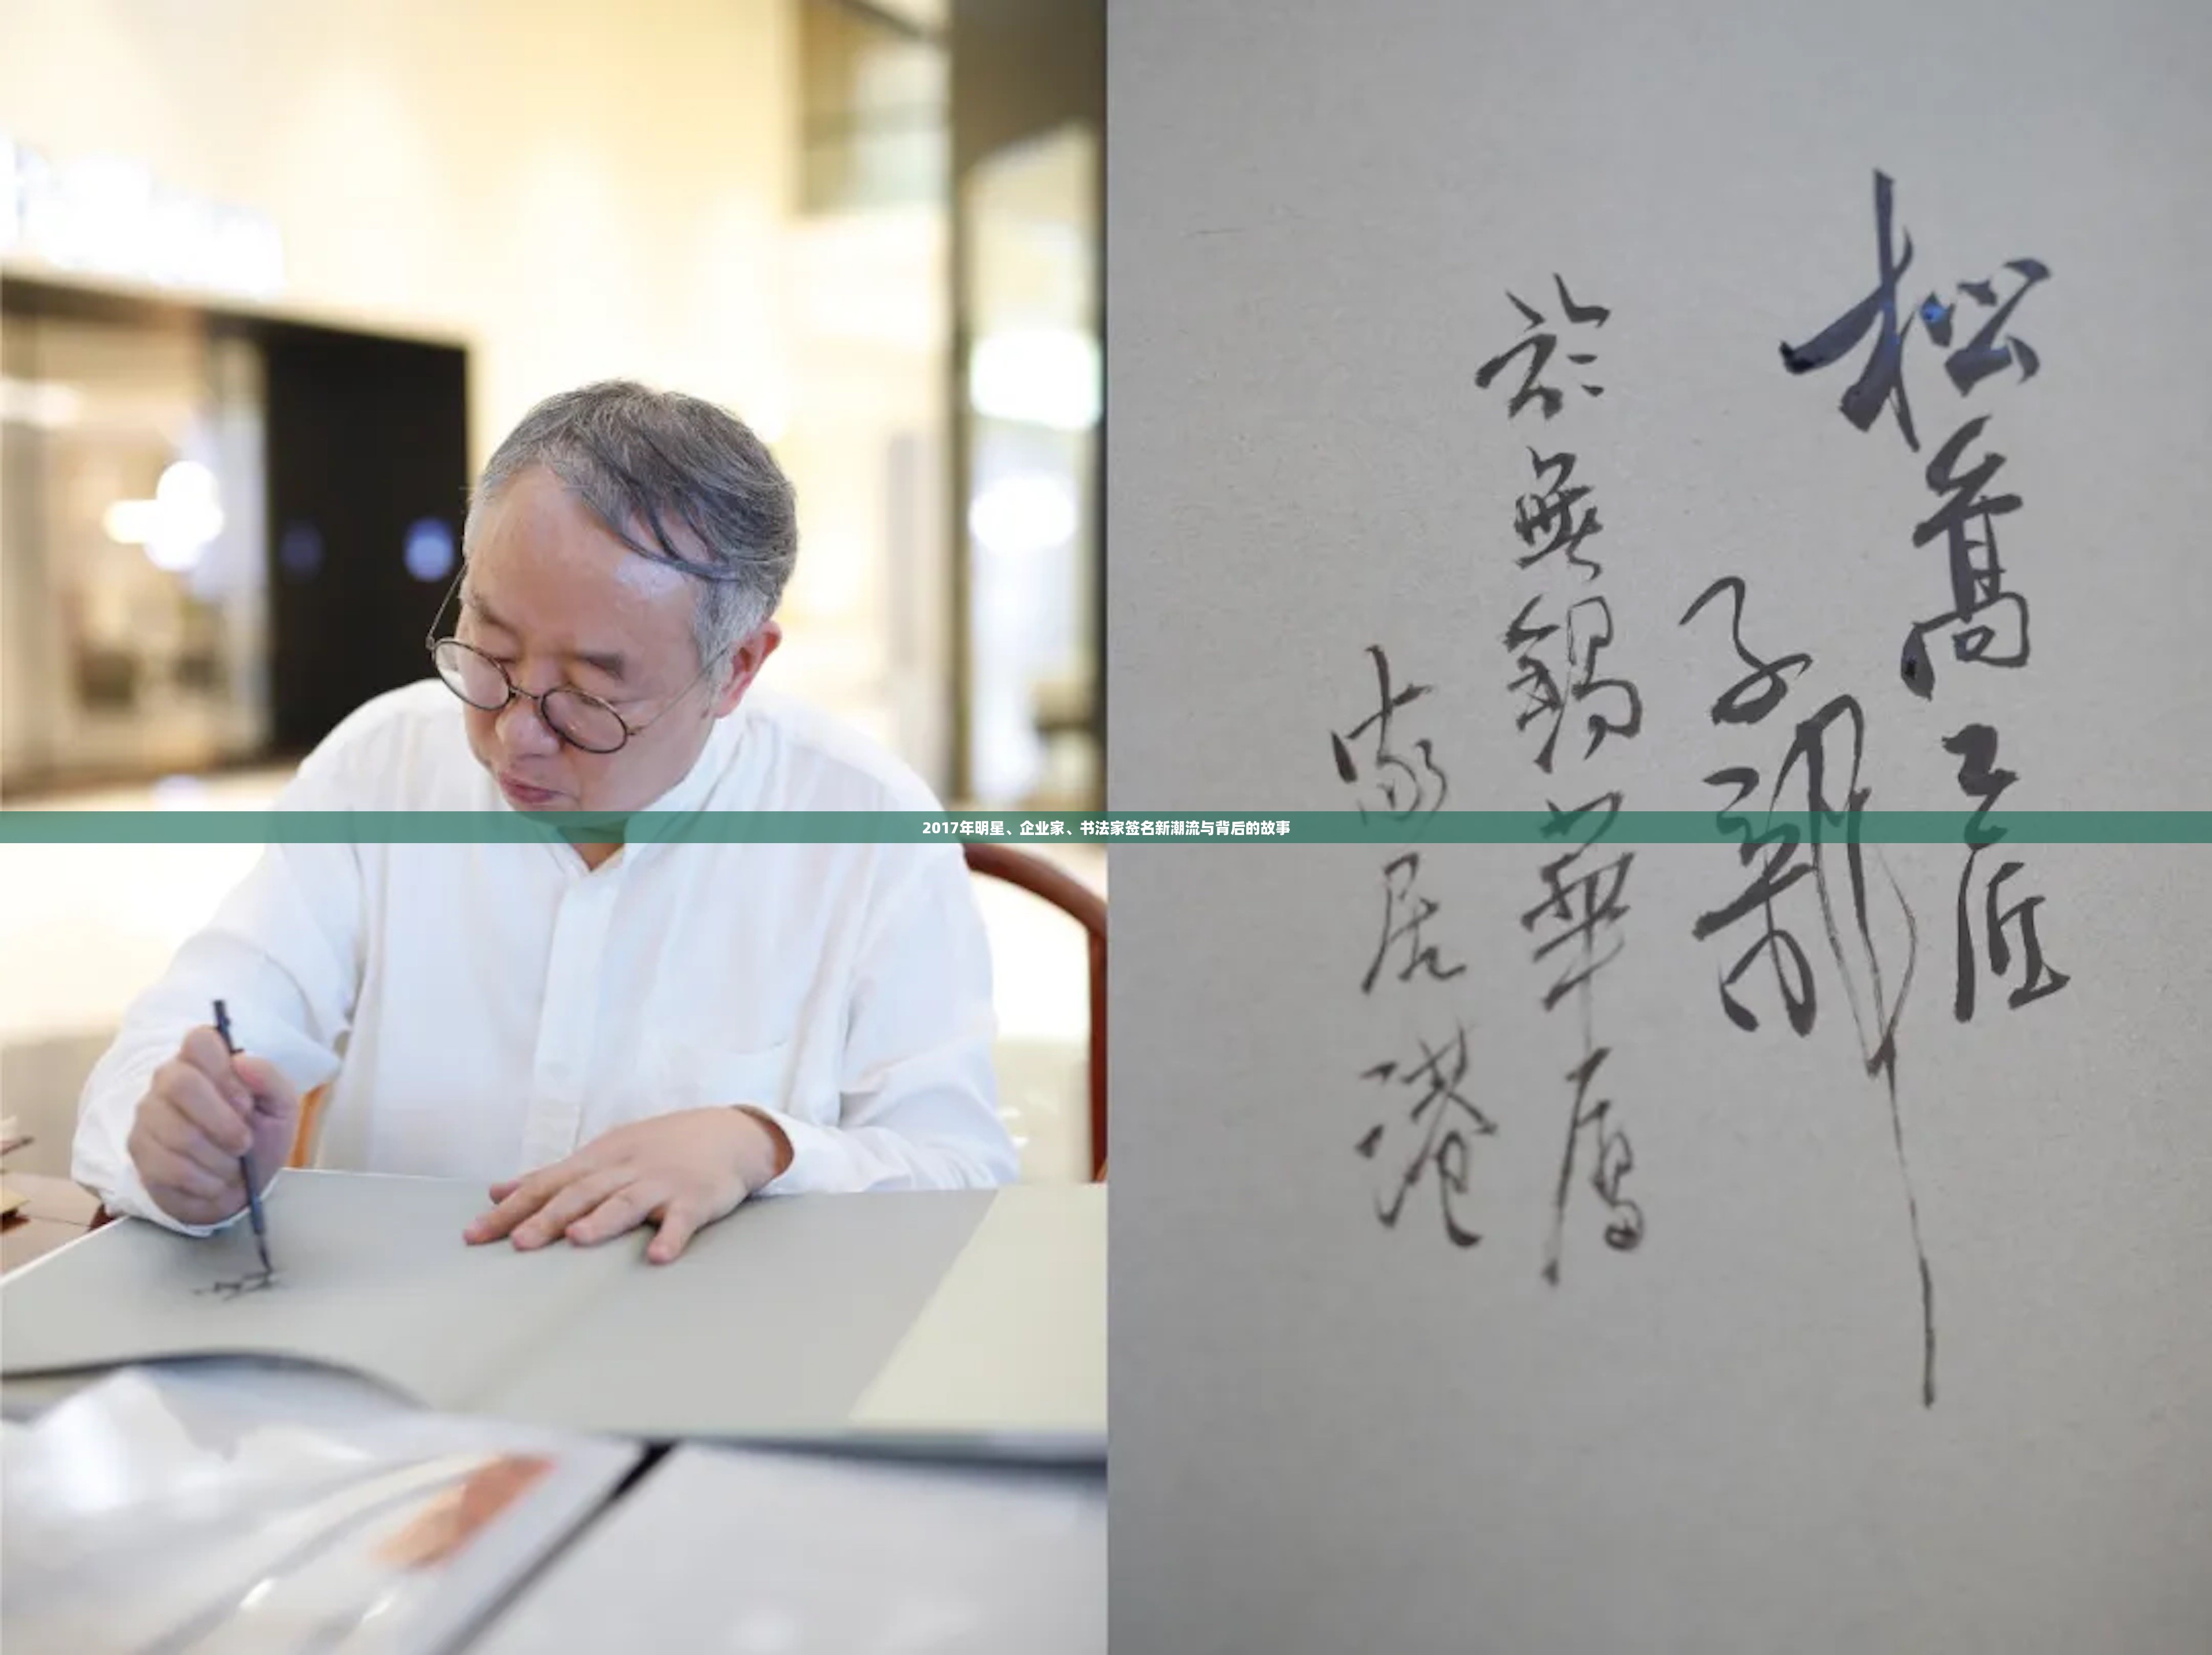 2017年明星、企业家、书法家签名新潮流与背后的故事
松喬工匠
子
於無錫華厦
家居港